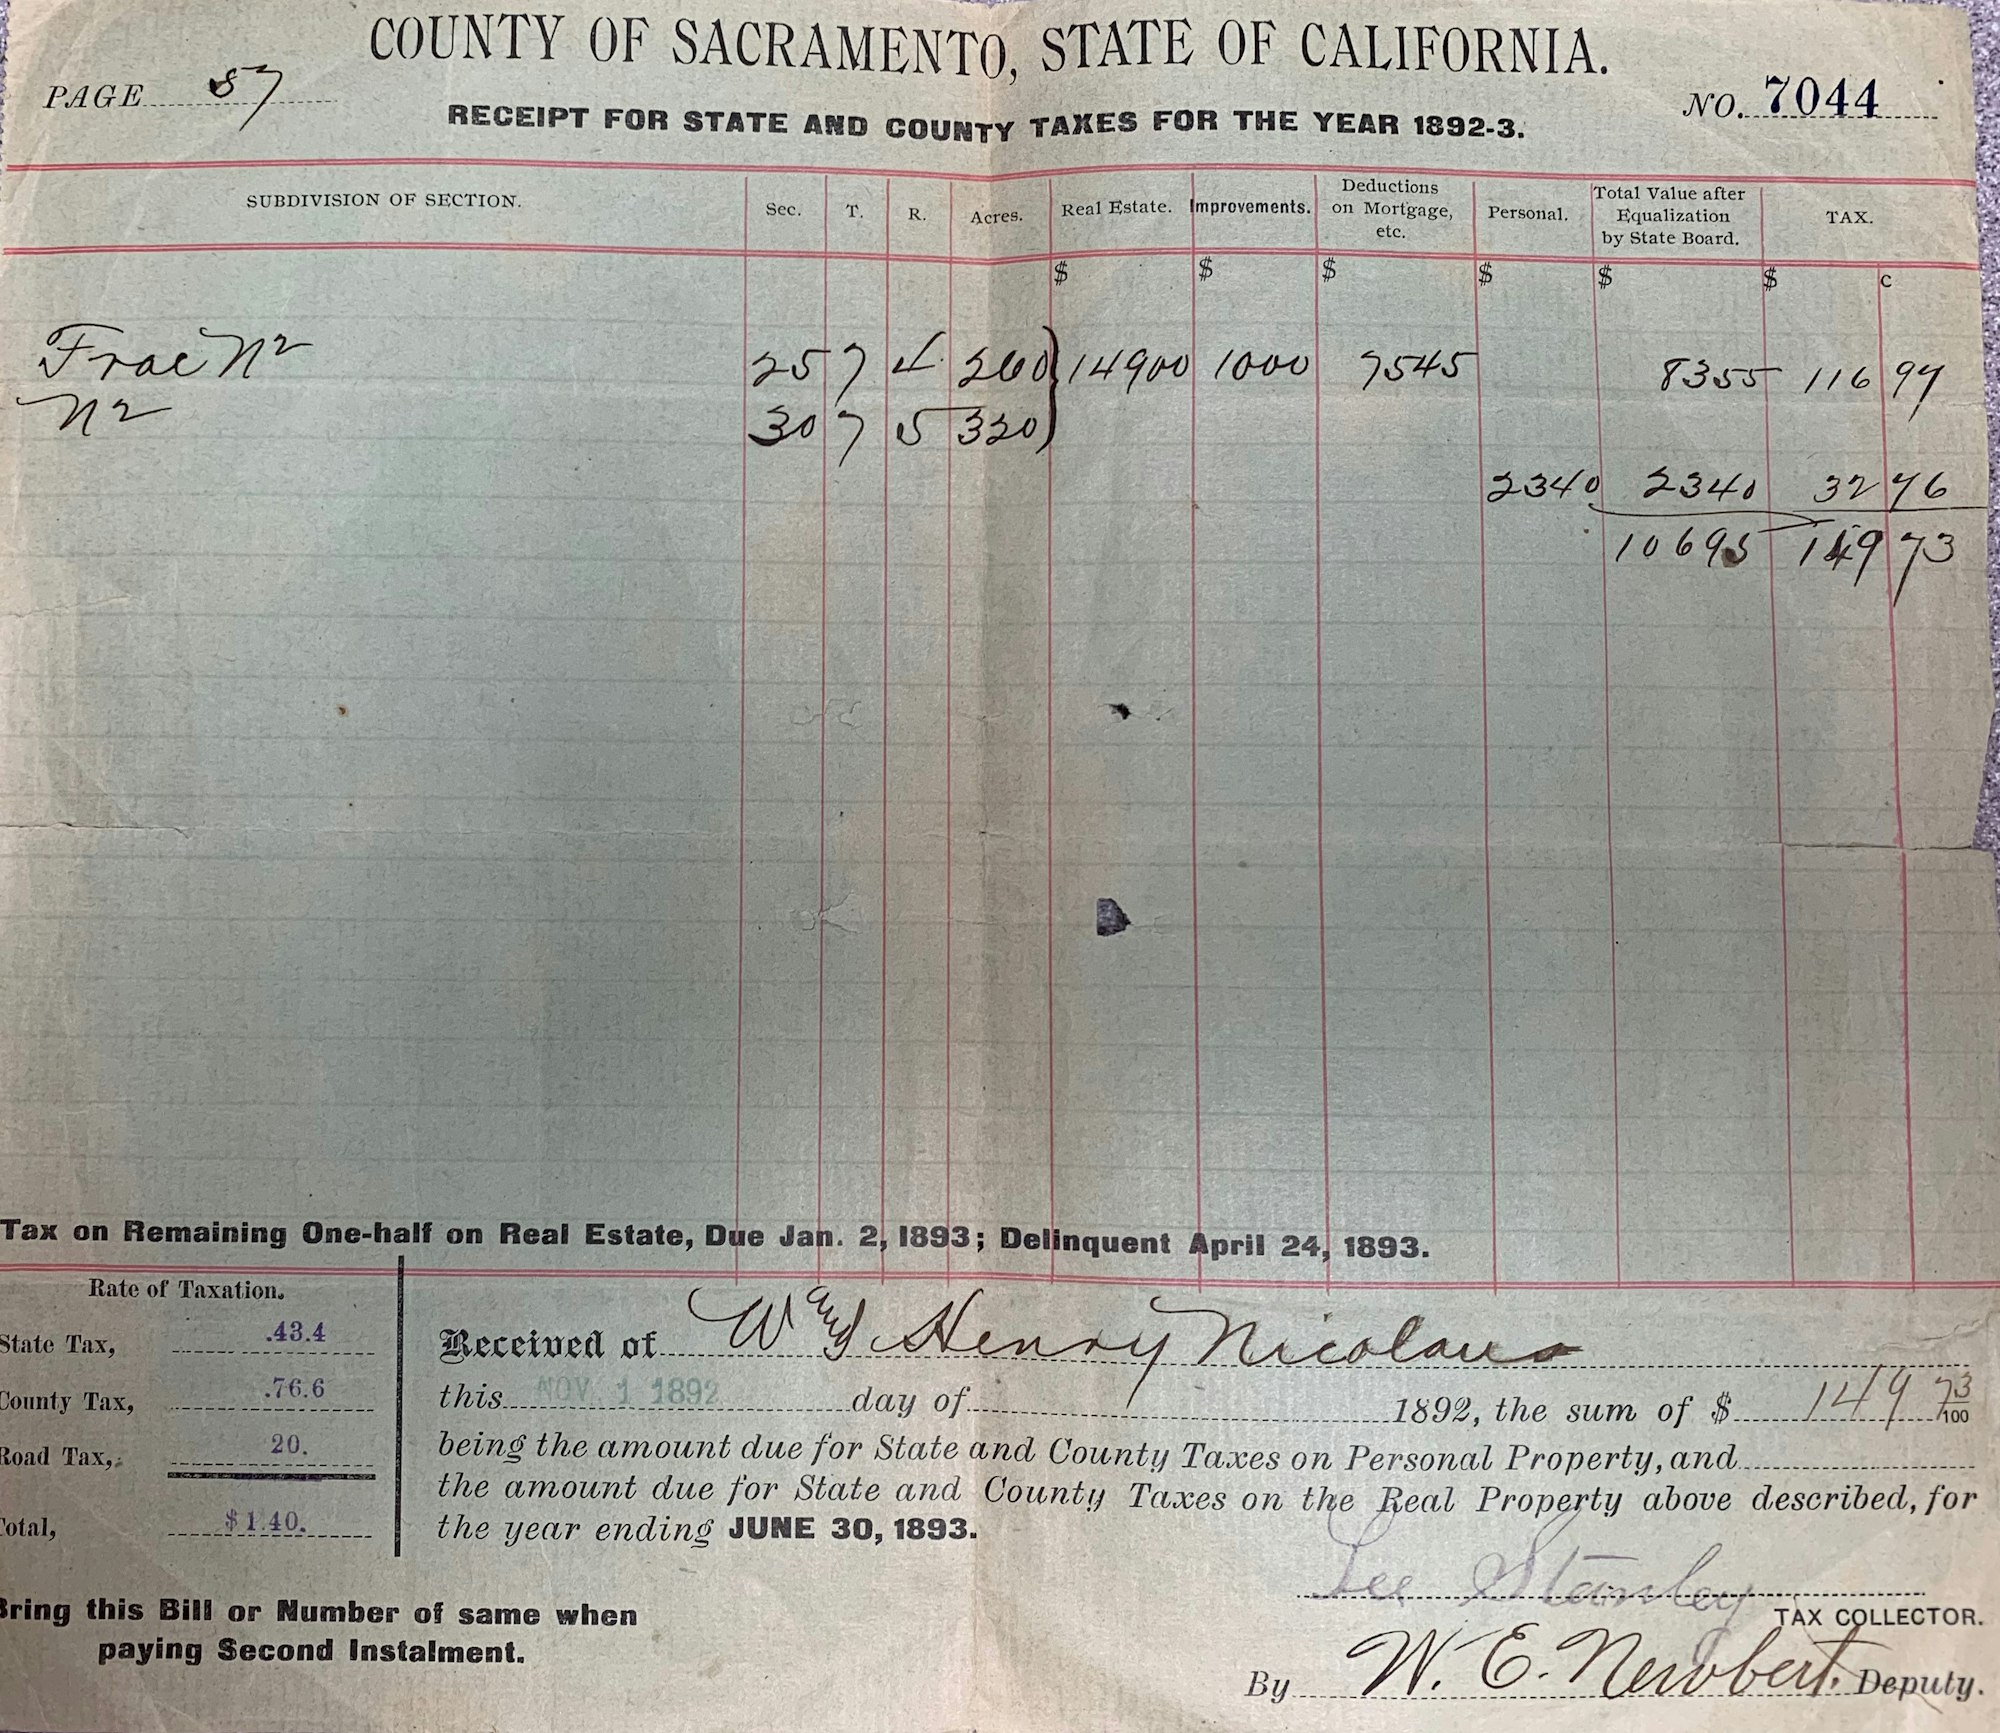 COUNTY OF SACRAMENTO, STATE OF CALIFORNIA.
PAGE 57
NO. 7044
RECEIPT FOR STATE AND COUNTY TAXES FOR THE YEAR 1892-3.
SUBDIVISION OF SECTION. Sec. T. R. Acres. Real Estate. Improvements. Deductions on Mortgage, etc. Personal. Total Value after Equalization by State Board. TAX.
$ $ $ $ $ $ c
Frac N2 25 7 4 260 14900 1000 7545 8355 116 97
N2 30 7 5 320
2340 2340 32 76
10695 149 73
Tax on Remaining One-half on Real Estate, Due Jan. 2, 1893; Delinquent April 24, 1893.
Rate of Taxation.
State Tax, .43.4
County Tax, .76.6
Road Tax, 20.
Total, $1.40.
Bring this Bill or Number of same when
paying Second Instalment.
Received of Wm and Henry Nicolaus
this NOV. 1 1892 day of 1892, the sum of $ 149 73/100
being the amount due for State and County Taxes on Personal Property, and
the amount due for State and County Taxes on the Real Property above described, for
the year ending JUNE 30, 1893.
Lee Stanley
TAX COLLECTOR.
By W. E. Newbert. Deputy.